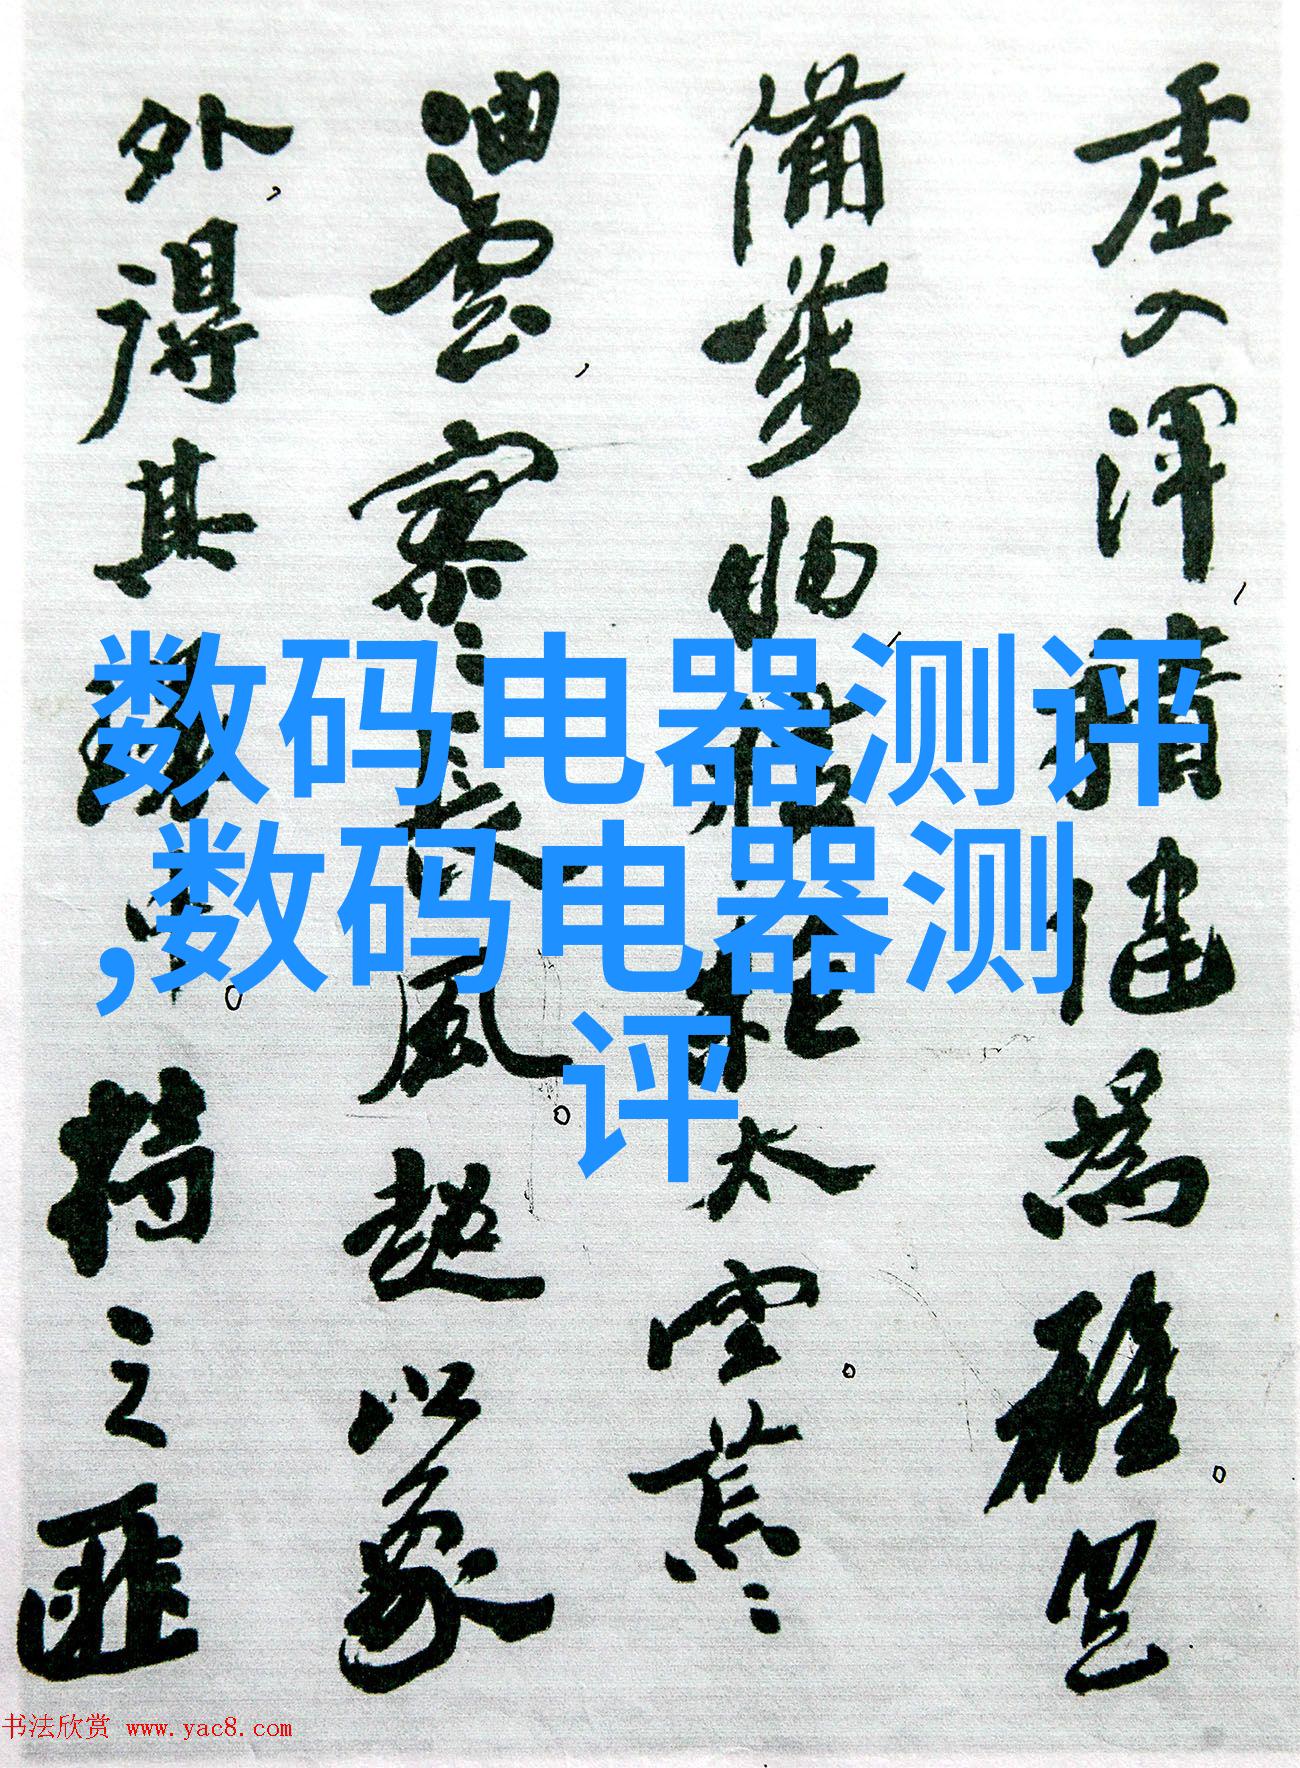 虚入渾，積健為雄。具
備萬物，橫絕太空。荒〻
油雲，寥〻長風。超以象
外，得其環中。持之匪
数码电器测评
,数码电器测
评
书法欣赏 www.yac8.com